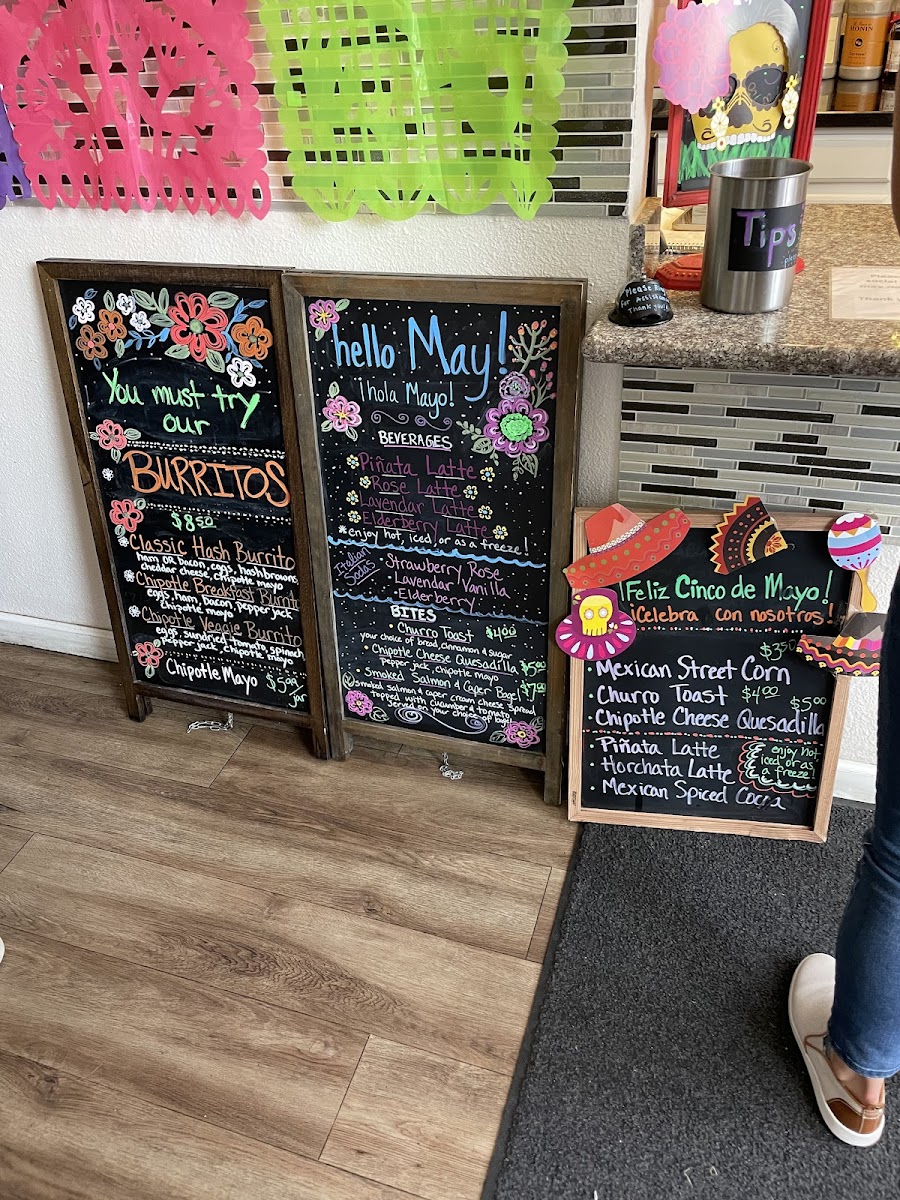 You must try
our
BURRITOS
$8.50
Classic Hash Burrito
ham or bacon, eggs, hashbrowns,
cheddar cheese, chipotle mayo
Chipotle Breakfast Burrito
eggs, ham, bacon, pepper jack
chipotle mayo
Chipotle Veggie Burrito
eggs, sundried tomato, spinach
pepper jack, chipotle mayo
Chipotle Mayo $5.00/jar
hello May!
¡hola Mayo!
BEVERAGES
Piñata Latte
Rose Latte
Lavendar Latte
Elderberry Latte
*enjoy hot, iced, or as a freeze!
Italian
Sodas
· Strawberry Rose
Lavendar Vanilla
·Elderberry
BITES
· Churro Toast $4.00
your choice of bread, cinnamon & sugar
· Chipotle Cheese Quesadilla $5.00
pepper jack, chipotle mayo
Smoked Salmon & Caper Bagel $7.00
smoked salmon & caper cream cheese spread
topped with cucumber & tomato
served on your choice of bagel
Tips
Please Ring
for Assistance
Thank you!
Please
social
Thank
RONIN
¡Feliz Cinco de Mayo!
¡Celebra con nosotros!
$3.50
· Mexican Street Corn
· Churro Toast $4.00
· Chipotle Cheese Quesadilla $5.00
· Piñata Latte
· Horchata Latte
· Mexican Spiced Cocoa
enjoy hot
iced or as
a freeze!